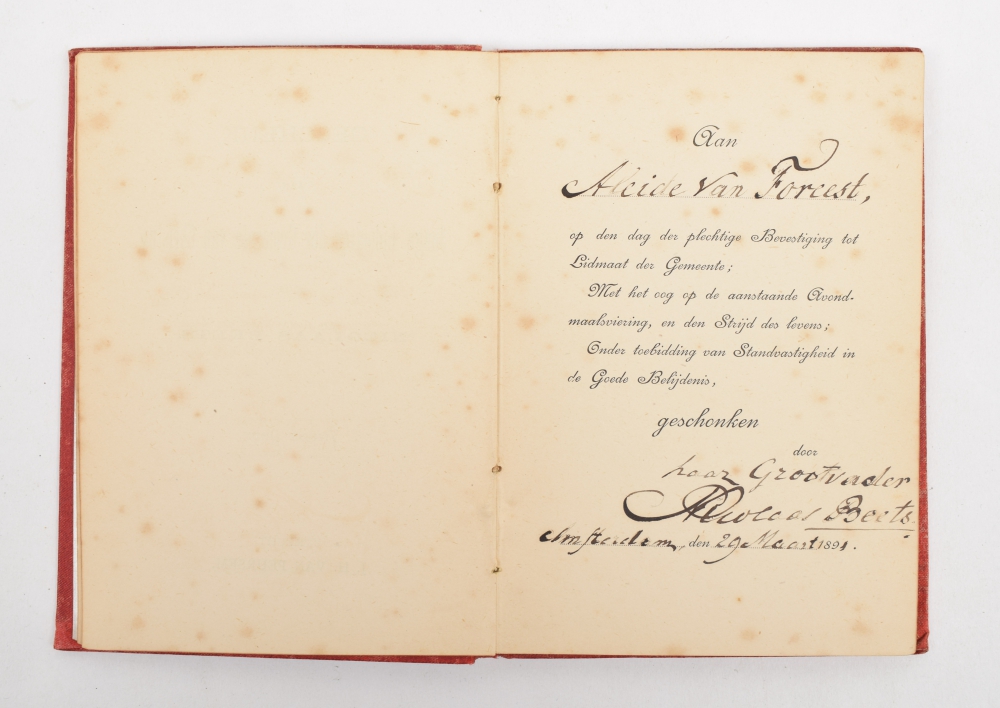 Aan
Aleide van Foreest,
op den dag der plechtige Bevestiging tot
Lidmaat der Gemeente;
Met het oog op de aanstaande Avond-
maalsviering, en den Strijd des levens;
Onder toebidding van Standvastigheid in
de Goede Belijdenis,
geschonken
door
haar Grootvader
Nicolaas Beets.
Amsterdam, den 29 Maart 1891.